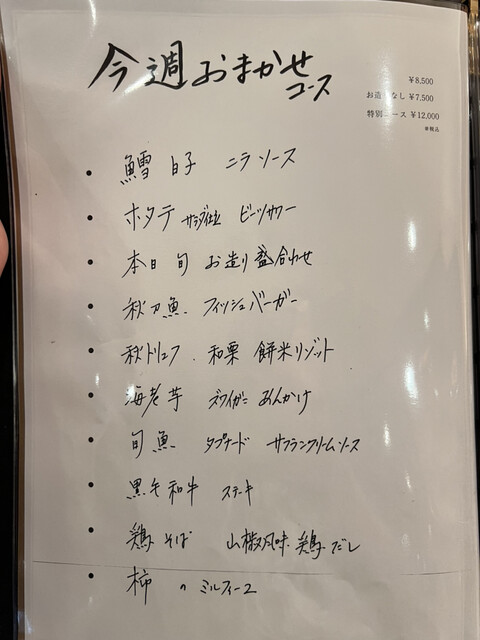 今週おまかせコース
¥8,500
お造りなし ¥7,500
特別コース ¥12,000
※税込
・ 鱈 白子 ニラソース
・ ホタテ サラダ仕立 ビーツサワー
・ 本日 旬 お造り盛合わせ
・ 秋刀魚 フィッシュバーガー
・ 秋トリュフ 和栗 餅米リゾット
・ 海老芋 ズワイガニ あんかけ
・ 旬魚 タプナード サフランクリームソース
・ 黒毛和牛 ステーキ
・ 鶏そば 山椒風味 鶏だし
・ 柿 の ミルフィーユ